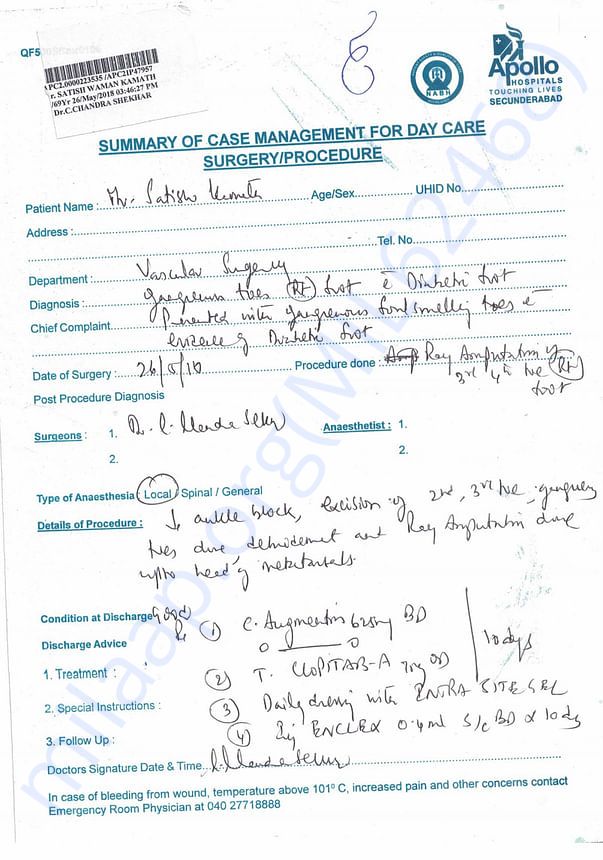 QF5
APC2.0000223535 /APC2IP47957
r. SATISH WAMAN KAMATH
/69Yr 26/May/2018 03:46:27 PM
Dr.C.CHANDRA SHEKHAR
NABH
Apollo
HOSPITALS
TOUCHING LIVES
SECUNDERABAD
SUMMARY OF CASE MANAGEMENT FOR DAY CARE
SURGERY/PROCEDURE
Patient Name : Mr. Satish Kamath Age/Sex UHID No.
Address :
Tel. No.
Department : Vascular Surgery
Diagnosis : gangrenous toes (Rt) foot Diabetic foot
Chief Complaint Presented with gangrenous foul smelling toes
evidence of Diabetic foot
Date of Surgery : 26/5/18 Procedure done : Ray Amputation of
3rd 4th toe (Rt)
foot
Post Procedure Diagnosis
Surgeons : 1. Dr. C. Chandra Sekhar Anaesthetist : 1.
2. 2.
Type of Anaesthesia : Local / Spinal / General
Details of Procedure : ankle block, excision of 2nd, 3rd toe,
toes done, debridement and Ray Amputation done
upto head of metatarsals.
Condition at Discharge Good
(1) C. Augmentin 625mg BD
0 0
Discharge Advice
10 days
1. Treatment : (2) T. CLOPITAB-A OD
2. Special Instructions : (3) Daily dressing with INTRA SITE GEL
3. Follow Up : (4) Inj ENCLEX 0.4ml S/C BD x 10 dys
Doctors Signature Date & Time
In case of bleeding from wound, temperature above 101º C, increased pain and other concerns contact
Emergency Room Physician at 040 27718888